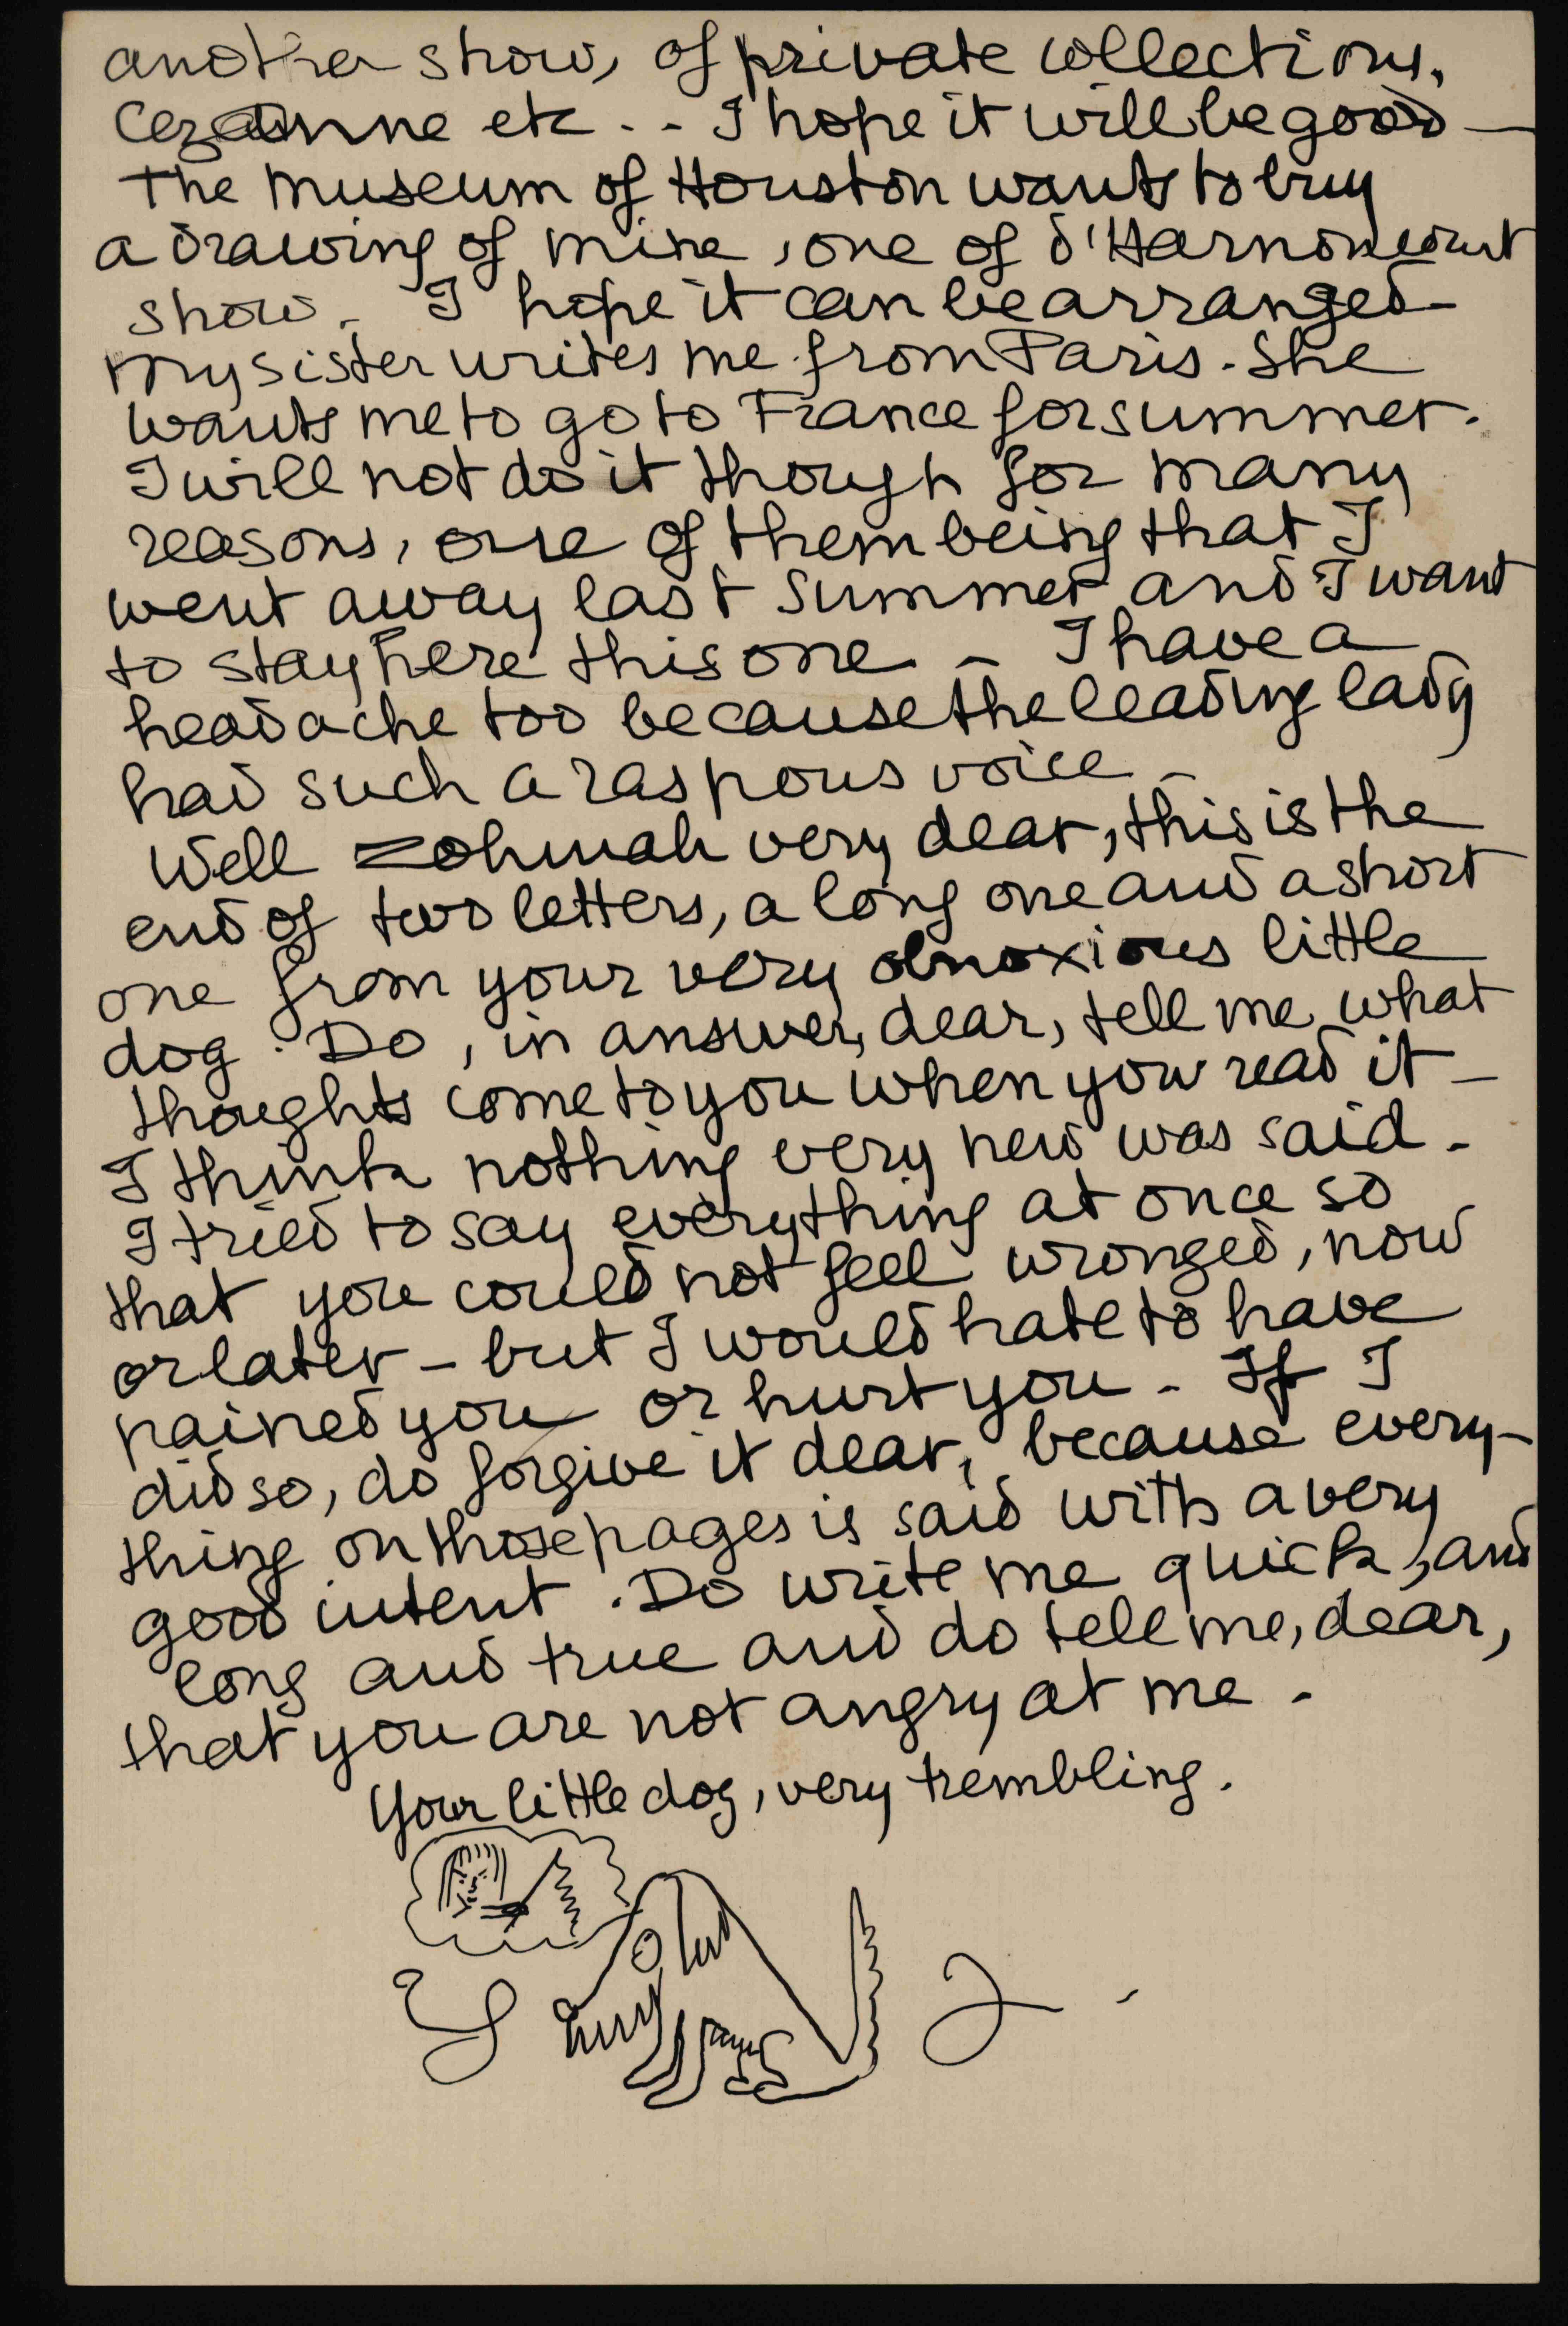 another show, of private collections,
Cezanne etc . . - I hope it will be good —
The Museum of Houston wants to buy
a drawing of mine, one of d'Harnoncourt
show. - I hope it can be arranged -
My sister writes me from Paris. She
wants me to go to France for summer.
I will not do it though for many
reasons, one of them being that I
went away last summer and I want
to stay here this one. - I have a
headache too because the leading lady
had such a raspous voice -
Well Zohmah very dear, this is the
end of two letters, a long one and a short
one from your very obnoxious little
dog. Do, in answer, dear, tell me what
thoughts come to you when you read it -
I think nothing very new was said -
I tried to say everything at once so
that you could not feel wronged, now
or later - but I would hate to have
pained you or hurt you - If I
did so, do forgive it dear, because every-
thing on those pages is said with a very
good intent. Do write me quick, and
long and true and do tell me, dear,
that you are not angry at me -
Your little dog, very trembling.